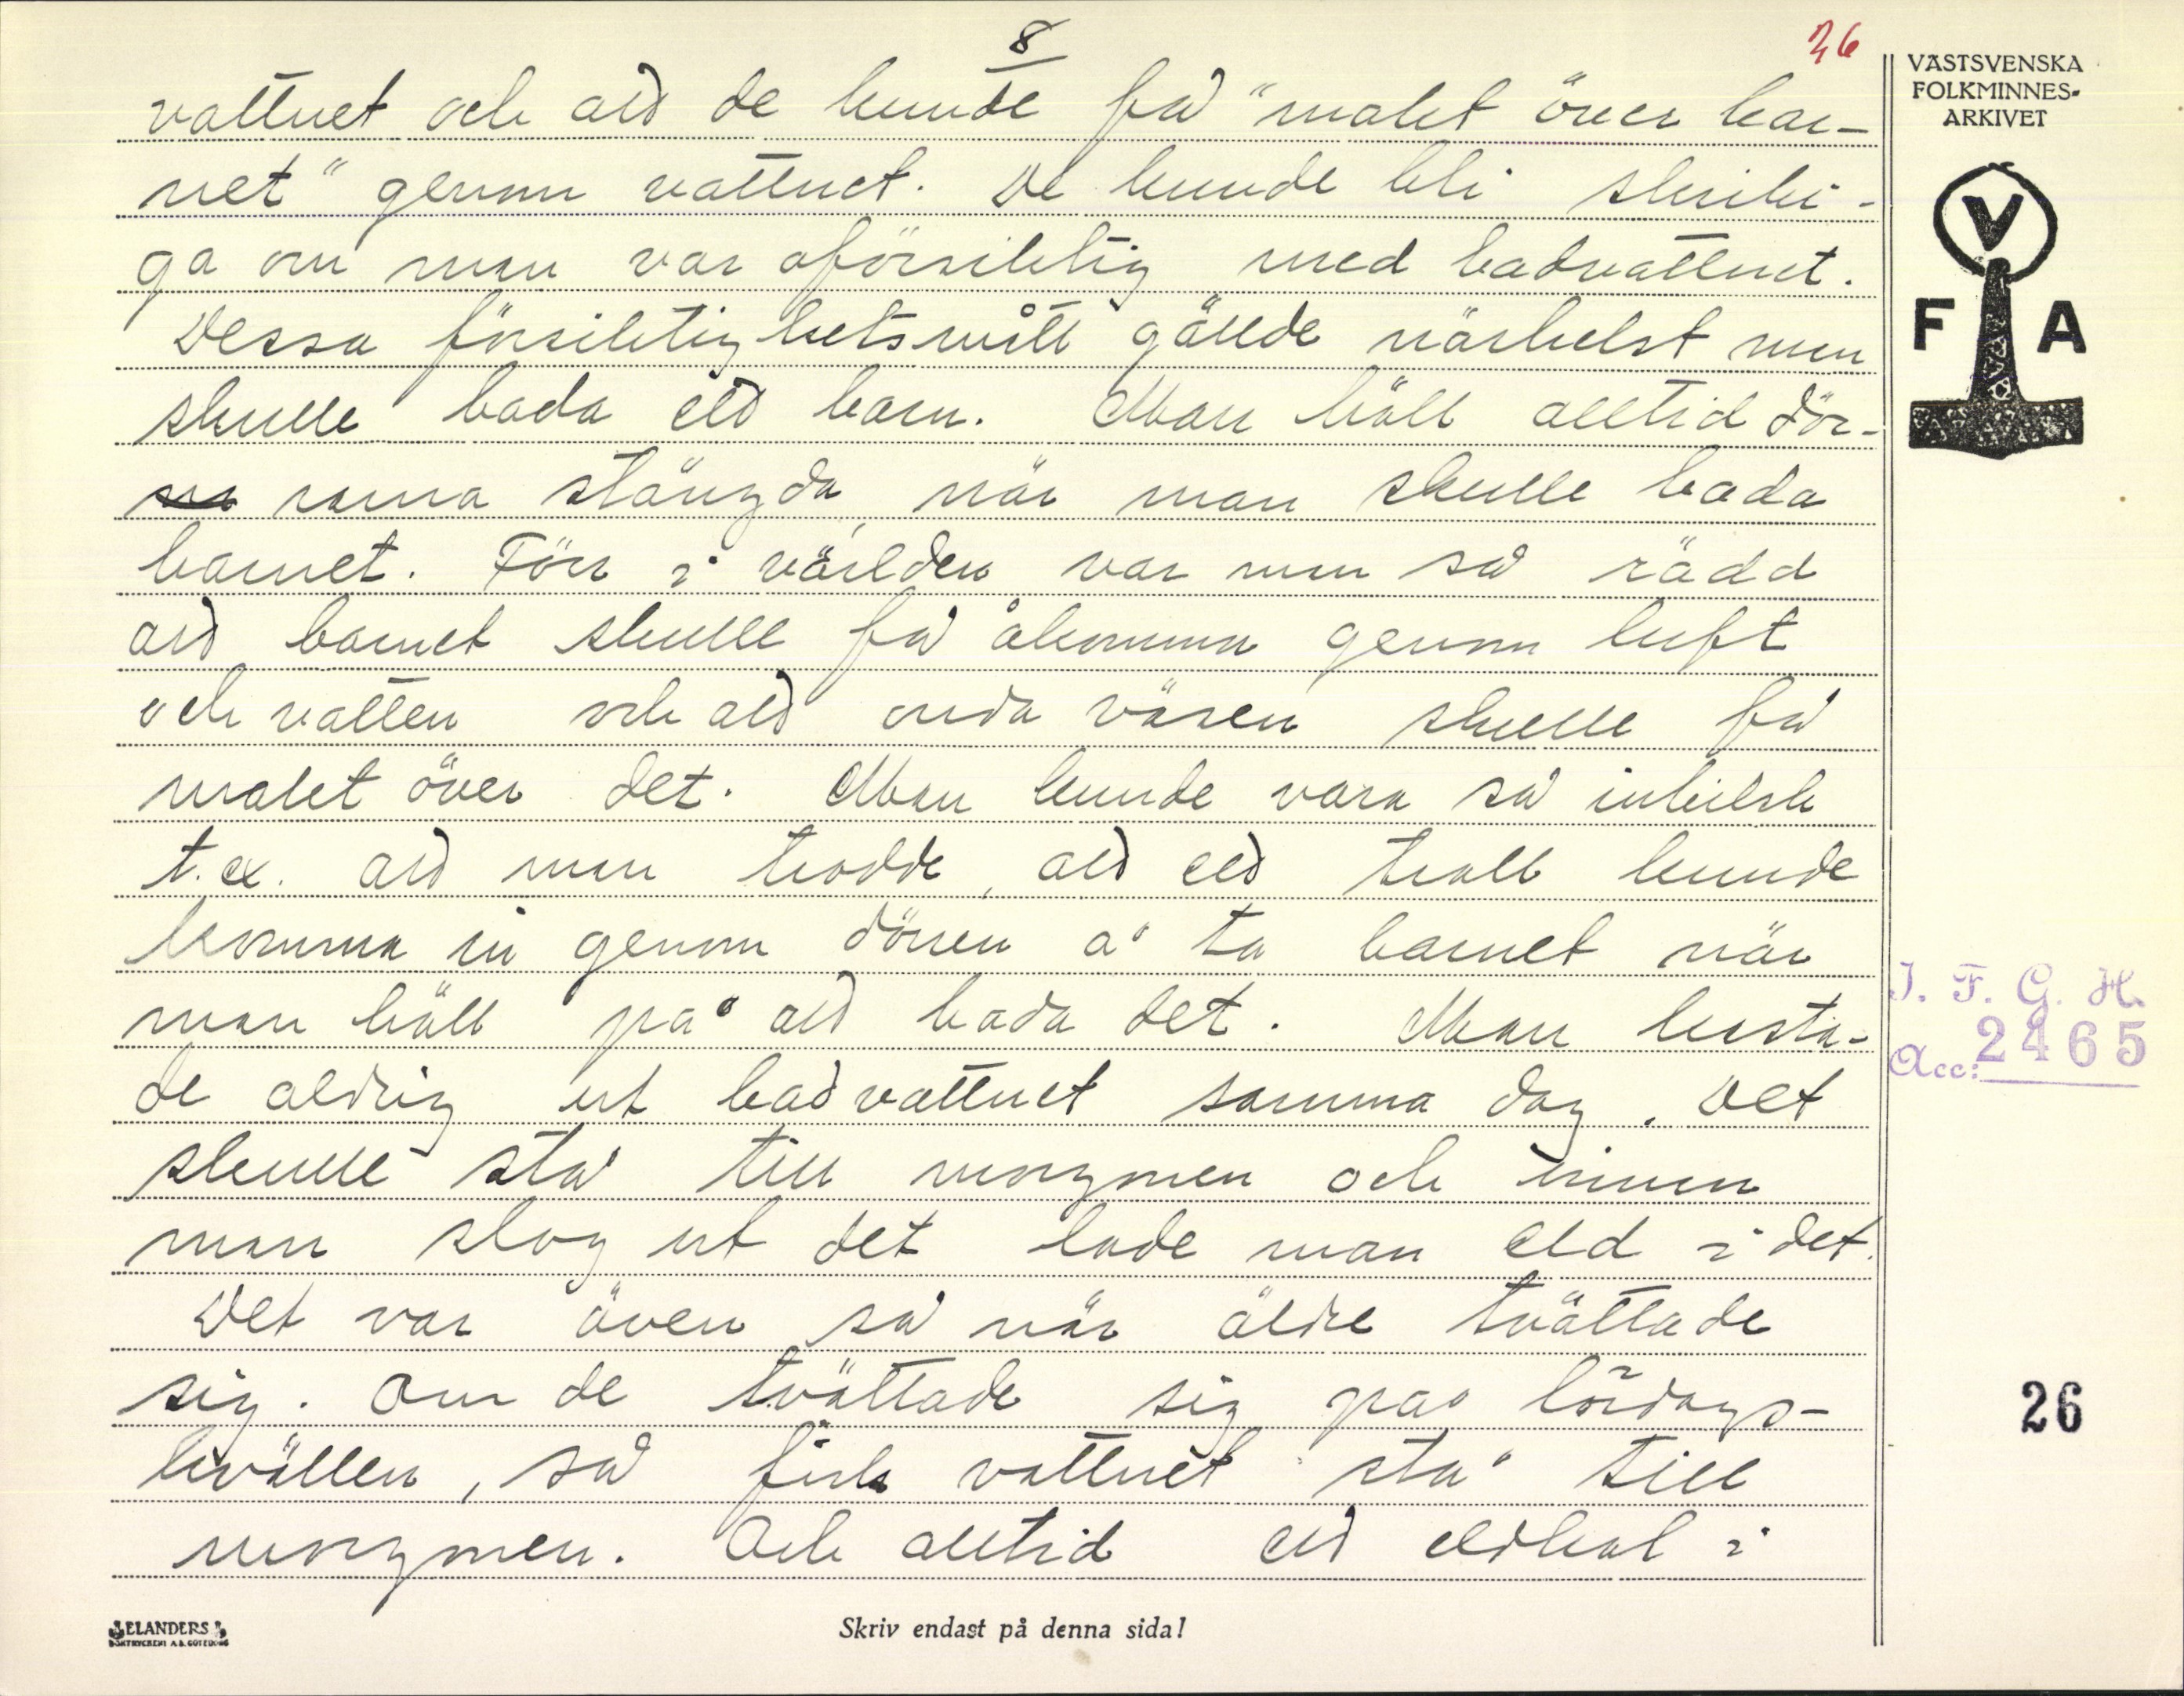 8
26
vattnet och att de kunde få "makt över bar-
net" genom vattnet. De kunde bli skriki-
ga om man var oförsiktig med badvattnet.
Dessa försiktighetsmått gällde närhelst man
skulle bada ett barn. Man höll alltid dör-
rarna stängda, när man skulle bada
barnet. Förr i världen var man så rädd
att barnet skulle få åkomma genom luft
och vatten och att onda väsen skulle få
makt över det. Man kunde vara så inbilsk
t.ex. att man trodde, att ett troll kunde
komma in genom dörren å ta barnet när
man höll på att bada det. Man kasta-
de aldrig ut badvattnet samma dag. Det
skulle stå till morgonen och innan
man slog ut det lade man eld i det.
Det var även så när äldre tvättade
sig. Om de tvättade sig på lördags-
kvällen, så fick vattnet stå till
morgonen. Och alltid ett eldkol i
VÄSTSVENSKA
FOLKMINNES-
ARKIVET
V
F A
I. F. G. H.
Acc: 2465
26
ELANDERS
BOKTRYCKERI A.B. GÖTEBORG
Skriv endast på denna sida!